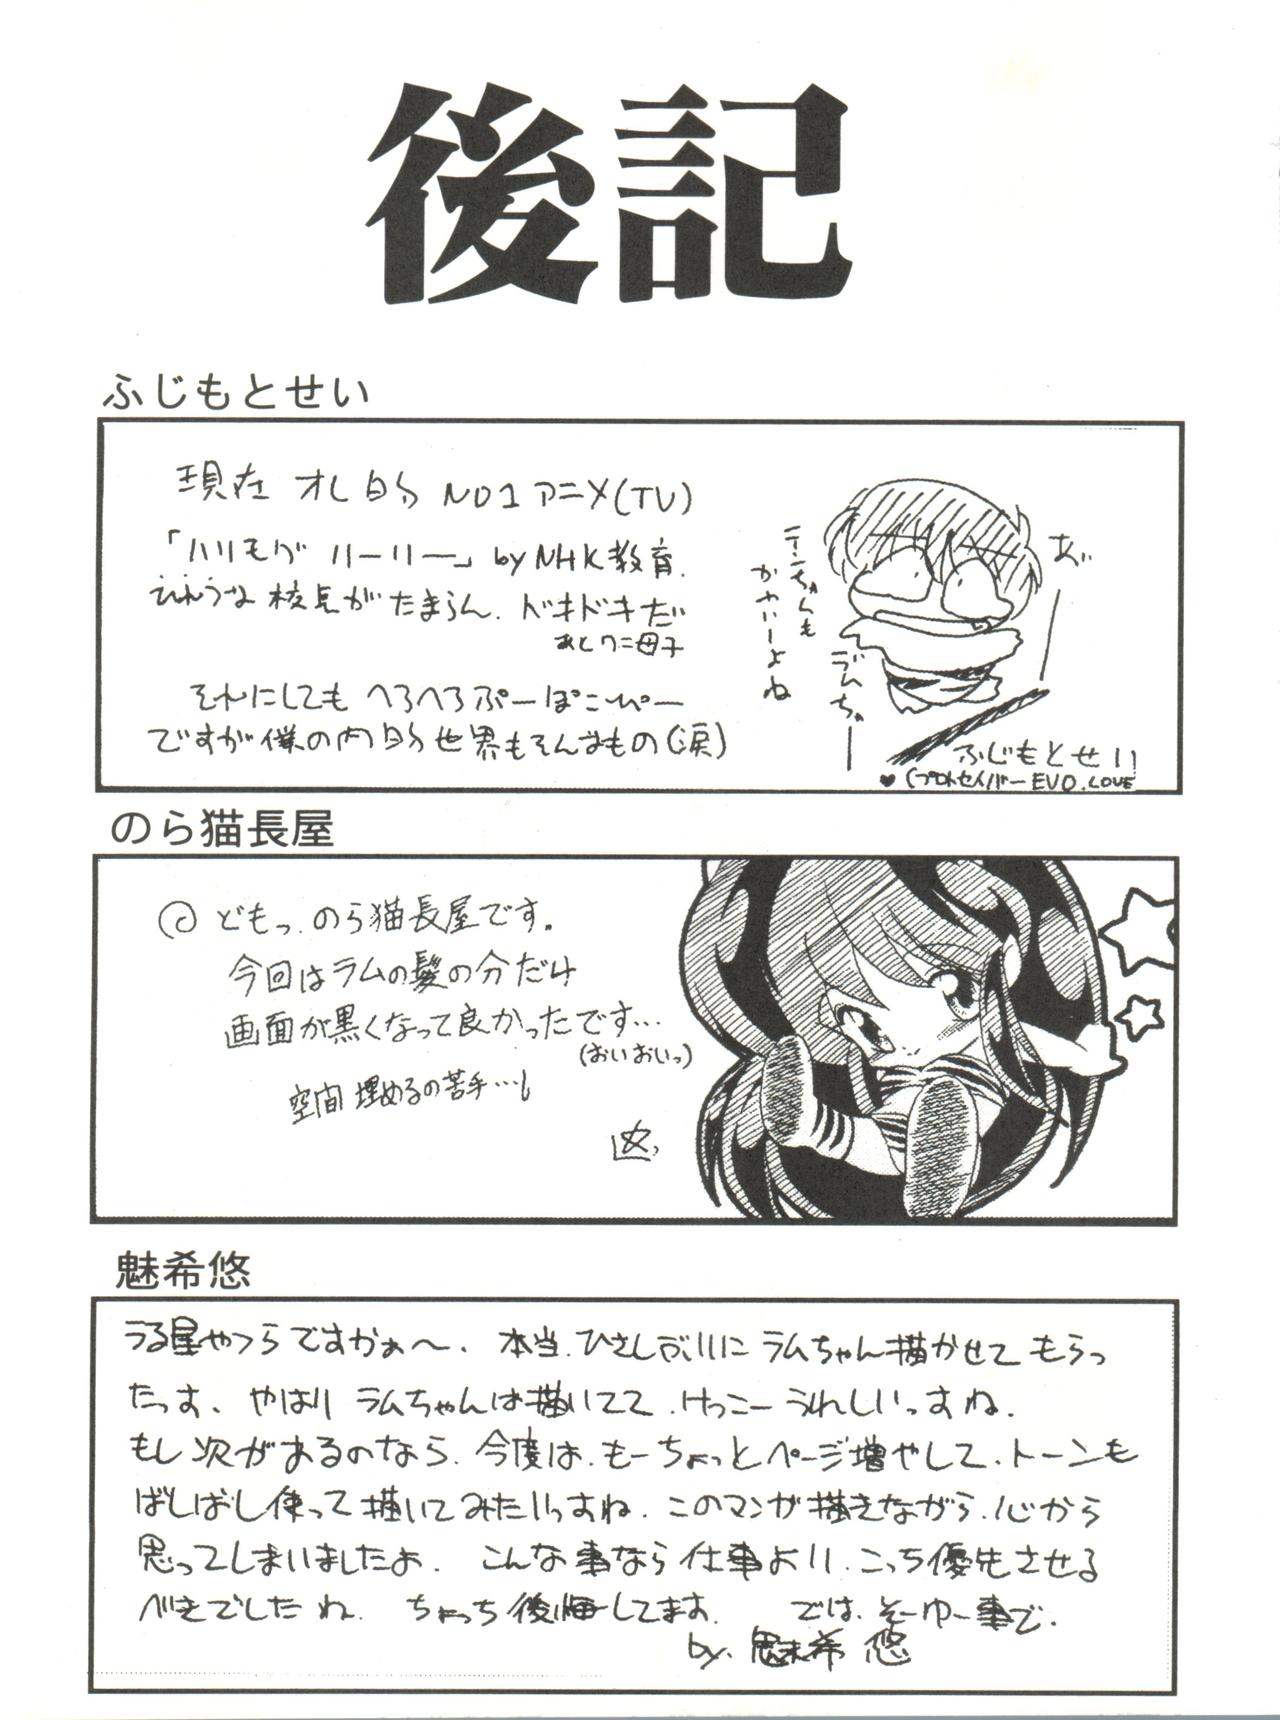 後記
ふじもとせい
現在 オレ的 NO1 アニメ(TV)
「ハリモグ ハーリー」by NHK教育.
びみょうな 校長がたまらん. ドキドキだ
あとワニ母子
それにしても へろへろぷーぽこぴー
ですが僕の内的世界もそんなもの(涙)
テンちゃんも
かわいーよね
ラムちゃー
あ゛
ふじもとせい
♥(プロトセイバーEVO.LOVE
のら猫長屋
どもっ.のら猫長屋です。
今回はラムの髪の分だけ
画面が黒くなって良かったです…
(おいおいっ)
空間 埋めるの苦手…
魅希悠
うる星やつらですかぁ〜. 本当.ひさしぶりに ラムちゃん描かせて もらっ
たっす. やはり ラムちゃんは描いてて.けっこーうれしいっすね.
もし次があるのなら.今度は.もーちょっとページ増やして.トーンも
ばしばし使って描いてみたいっすね.このマンガ描きながら.心から
思ってしまいましたよ. こんな事なら仕事より.こっち優先させる
べきでしたね. ちょっち後悔してます. では.そーゆー事で.
by. 魅希 悠